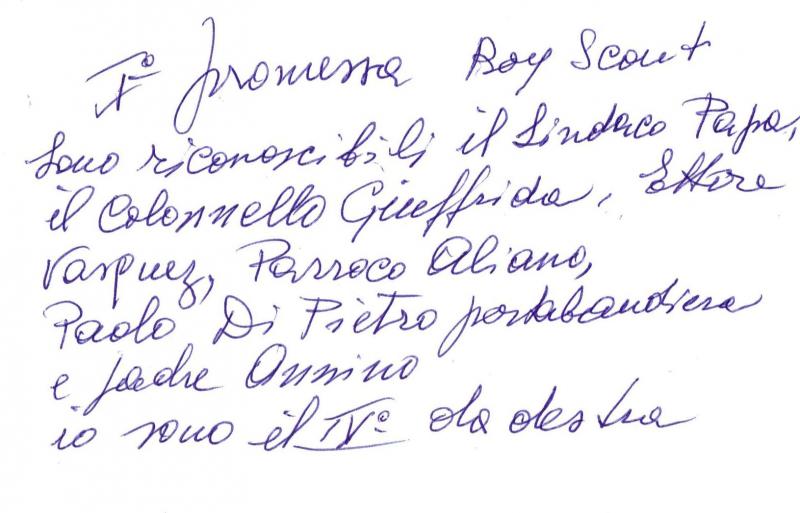 I° promessa Boy Scout
sono riconoscibili il Sindaco Papa,
il Colonnello Giuffrida, Ettore
Vasquez, Parroco Aliano,
Paolo Di Pietro portabandiera
e padre Annino
io sono il IV° da destra